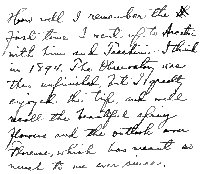 How well I remember the
first time I went up to Arcetri
with him and Tacchini. I think
in 1894. The Observatory was
then unfinished, but I greatly
enjoyed the trip, and well
recall the beautiful spring
flowers and the outlook over
Florence, which has meant so
much to me ever since.